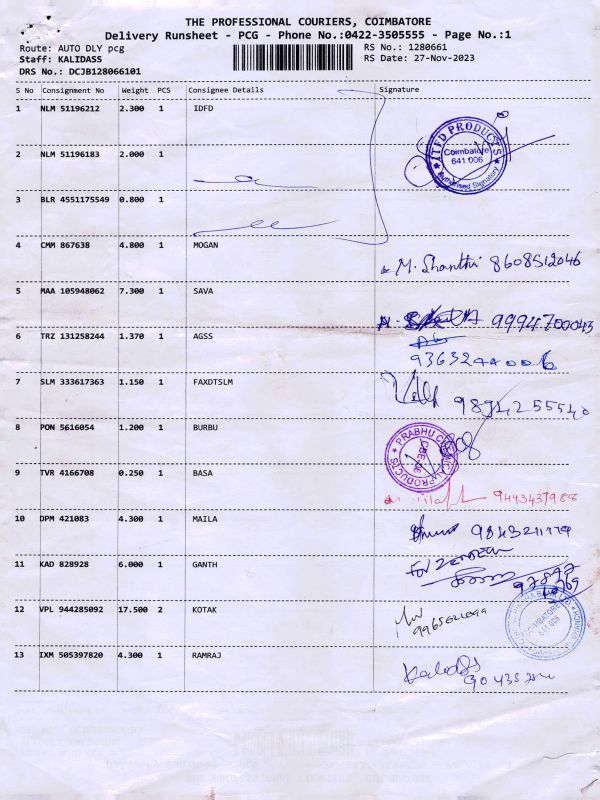 THE PROFESSIONAL COURIERS, COIMBATORE
Delivery Runsheet - PCG - Phone No.:0422-3505555 - Page No.:1
Route: AUTO DLY pcg RS No.: 1280661
Staff: KALIDASS RS Date: 27-Nov-2023
DRS No.: DCJB128066101
S No Consignment No Weight PCS Consignee Details Signature
1 NLM 51196212 2.300 1 IDFD
PRODUCTS
Coimbatore
641 006
Authorised Signatory
2 NLM 51196183 2.000 1
3 BLR 4551175549 0.800 1
4 CMM 867638 4.800 1 MOGAN
M. Shanthi 8608512046
5 MAA 105948062 7.300 1 SAVA
9994700043
6 TRZ 131258244 1.370 1 AGSS
9363244006
7 SLM 333617363 1.150 1 FAXDTSLM
9894255540
8 PON 5616054 1.200 1 BURBU
PRABHU CHEMICAL PRODUCTS
9 TVR 4166708 0.250 1 BASA
9443437988
10 DPM 421083 4.300 1 MAILA
11 KAD 828928 6.000 1 GANTH
12 VPL 944285092 17.500 2 KOTAK
COIMBATORE
13 IXM 505397820 4.300 1 RAMRAJ